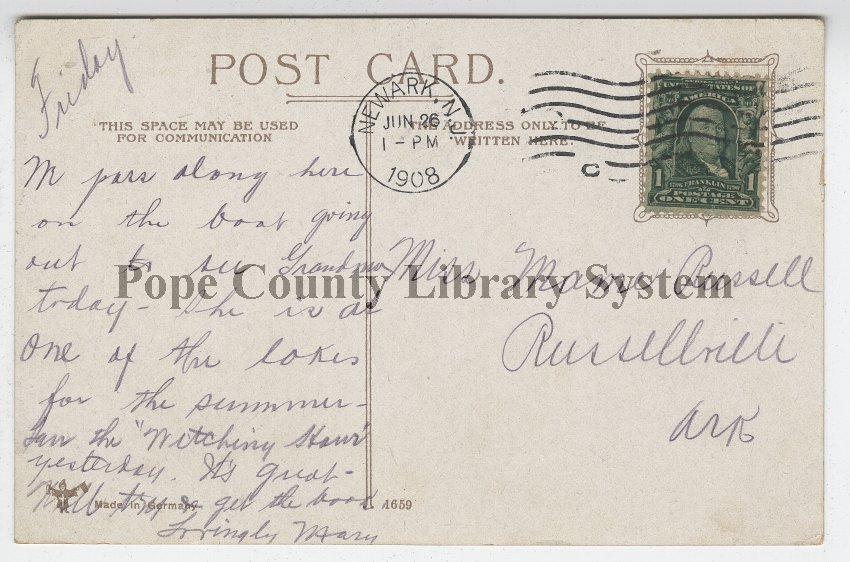 Friday
POST CARD.
THIS SPACE MAY BE USED
FOR COMMUNICATION
THE ADDRESS ONLY TO BE
WRITTEN HERE.
NEWARK, N.J.
JUN 26
1 - PM
1908
C
UNITED STATES OF
AMERICA
1 FRANKLIN 1
POSTAGE
ONE CENT
pass along here
on the boat going
out to see Grandma
today - She is at
One of the lakes
for the summer -
Saw the "Witching Hour"
yesterday. It's great -
Will try & get the book
Lovingly Mary
Miss Mame Russell
Russellville
Ark
Pope County Library System
Made in Germany
1659